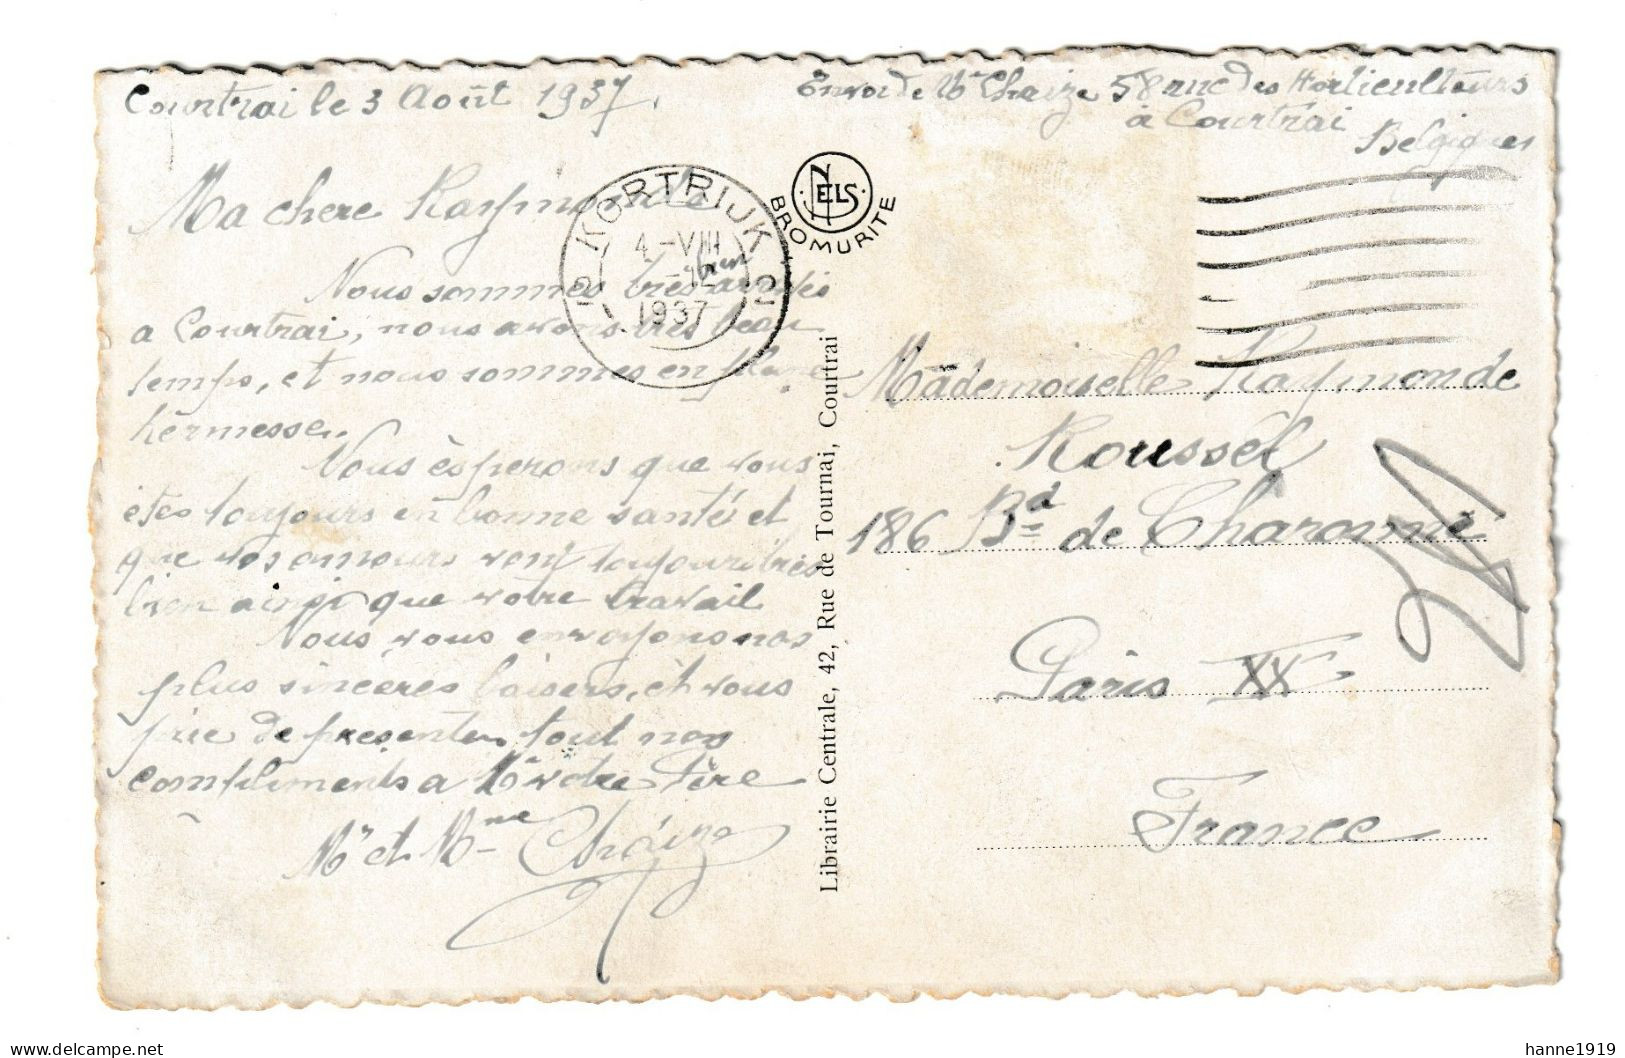 Courtrai le 3 Août 1937.
Ma chere Raymonde
Nous sommes très bien arrivés
a Courtrai, nous avons très beau
temps, et nous sommes en pleine
Kermesse.
Nous èsperons que vous
etes toujours en bonne santé et
que vos amours vont toujours très
bien ainsi que votre travail
Nous vous envoyons nos
plus sincères baisers, et vous
prie de presenter tout nos
compliments a Mr votre Père
Mr et Mme Chaize
Envoi de Mr Chaize 58 rue des Horticulteurs
a Courtrai
Belgique
KORTRIJK
4-VIII
1937
2 2
NELS
BROMURITE
Librairie Centrale, 42, Rue de Tournai, Courtrai
Mademoiselle Raymonde
Roussel
186 Bd de Charonne
Paris XX
France
hanne1919